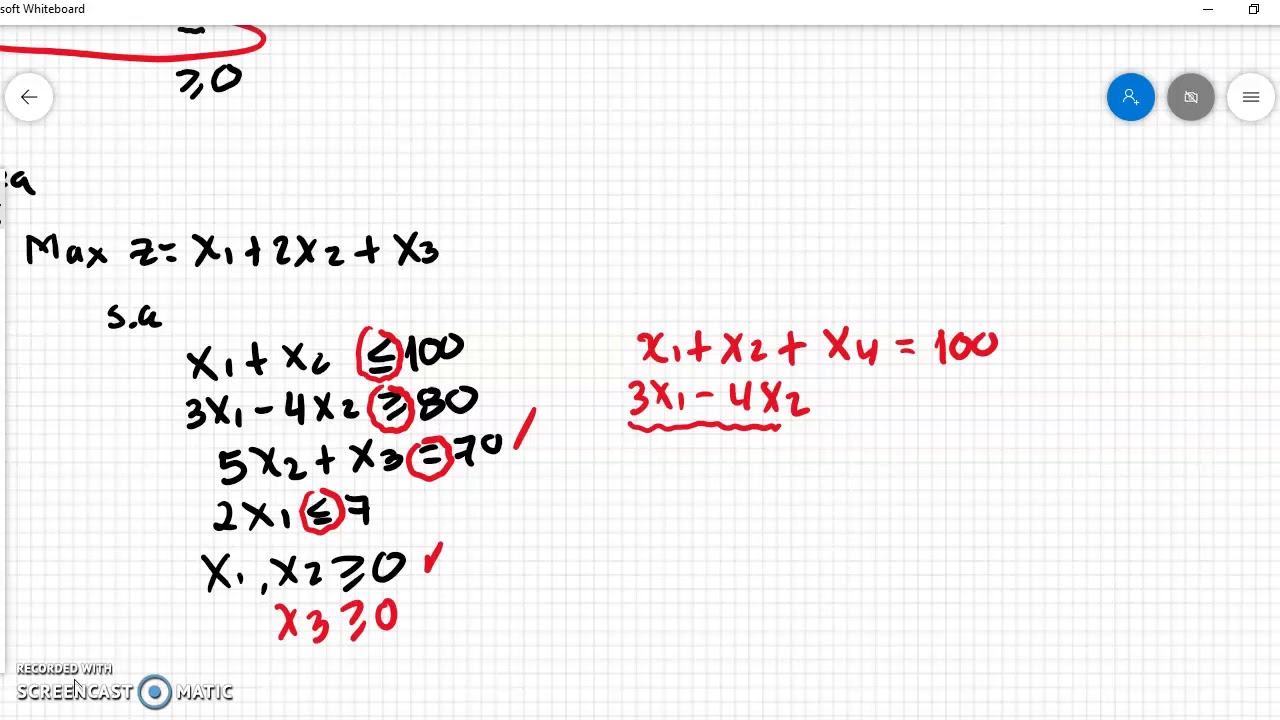 soft Whiteboard
≥0
:a
Max z= x1+2x2+x3
s.a
x1+x2 ≤100
3x1-4x2 ≥80
5x2+x3=70
2x1≤7
x1,x2≥0
x3≥0
x1+x2+x4=100
3x1-4x2
RECORDED WITH
SCREENCAST MATIC